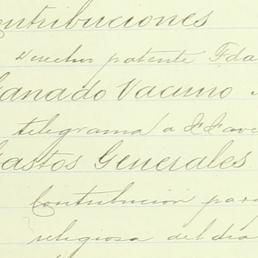 Contribuciones
Derechos patente Fda
Ganado Vacuno
telegrama a
Gastos Generales
Contribución para
religiosa del día